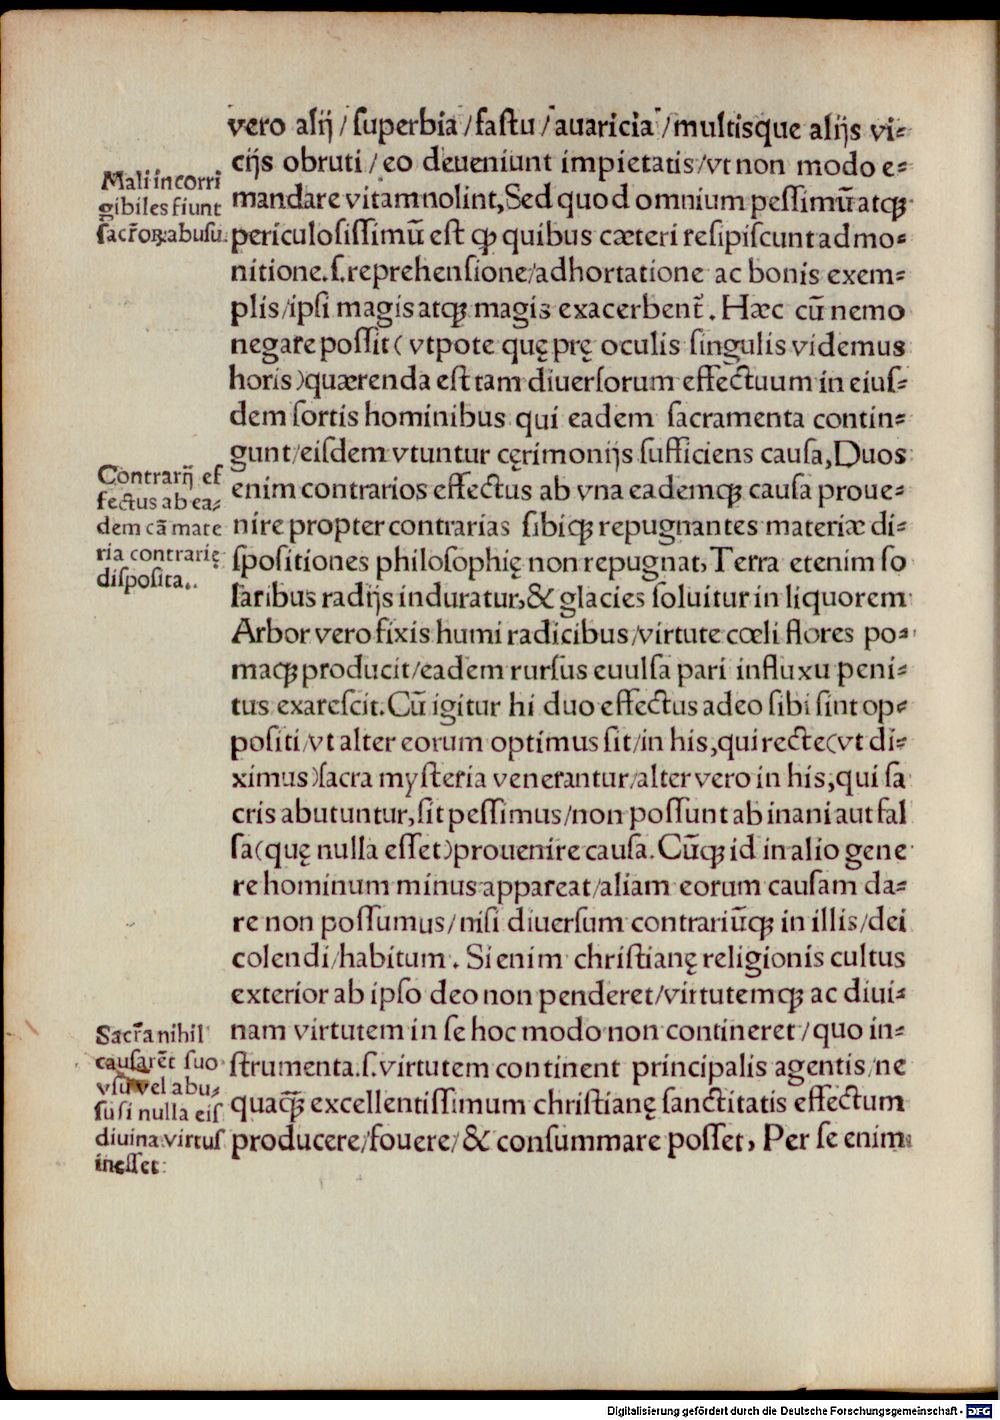 vero alij / ſuperbia / faſtu / auaricia / multisque alijs vi⸗
cijs obruti / eo deueniunt impietatis / vt non modo e⸗
mandare vitam nolint, Sed quod omnium peſſimũ atqꝫ
periculoſiſſimũ eſt ꝙ quibus cæteri reſipiſcunt admo⸗
nitione.ſ.reprehenſione/adhortatione ac bonis exem⸗
plis/ipſi magis atqꝫ magis exacerbent̃. Hæc cũ nemo
negare poſſit( vtpote quę prę oculis ſingulis videmus
horis)quærenda eſt tam diuerſorum effectuum in eiuſ⸗
dem ſortis hominibus qui eadem ſacramenta contin⸗
gunt/eiſdem vtuntur cęrimonijs ſufficiens cauſa, Duos
enim contrarios effectus ab vna eademqꝫ cauſa proue⸗
nire propter contrarias ſibiqꝫ repugnantes materiæ di⸗
ſpoſitiones philoſophię non repugnat, Terra etenim ſo
laribus radijs induratur, & glacies ſoluitur in liquorem
Arbor vero fixis humi radicibus/virtute cœli flores po⸗
maqꝫ producit/eadem rurſus euulſa pari influxu peni⸗
tus exareſcit. Cũ igitur hi duo effectus adeo ſibi ſint op⸗
poſiti/vt alter eorum optimus ſit/in his,qui recte(vt di⸗
ximus)ſacra myſteria venerantur/alter vero in his,qui ſa
cris abutuntur,ſit peſſimus/non poſſunt ab inani aut fal
ſa(quę nulla eſſet)prouenire cauſa. Cũqꝫ id in alio gene
re hominum minus appareat/aliam eorum cauſam da⸗
re non poſſumus/niſi diuerſum contrariũqꝫ in illis/dei
colendi/habitum. Si enim chriſtianę religionis cultus
exterior ab ipſo deo non penderet/virtutemqꝫ ac diui⸗
nam virtutem in ſe hoc modo non contineret/quo in⸗
ſtrumenta.ſ.virtutem continent principalis agentis/ne
quaqꝫ̃ excellentiſſimum chriſtianę ſanctitatis effectum
producere/fouere/& conſummare poſſet, Per ſe enim
Mali incorri
gibiles fiunt
ſacr̃oꝝ abuſu.
Contrarij ef
fectus ab ea⸗
dem cã mate
ria contrarię
diſpoſita..
Sacr̃a nihil
cauſarẽt ſuo
vſu vel abu⸗
ſu ſi nulla eiſ
diuina virtuſ
ineſſet:
Digitalisierung gefördert durch die Deutsche Forschungsgemeinschaft - DFG